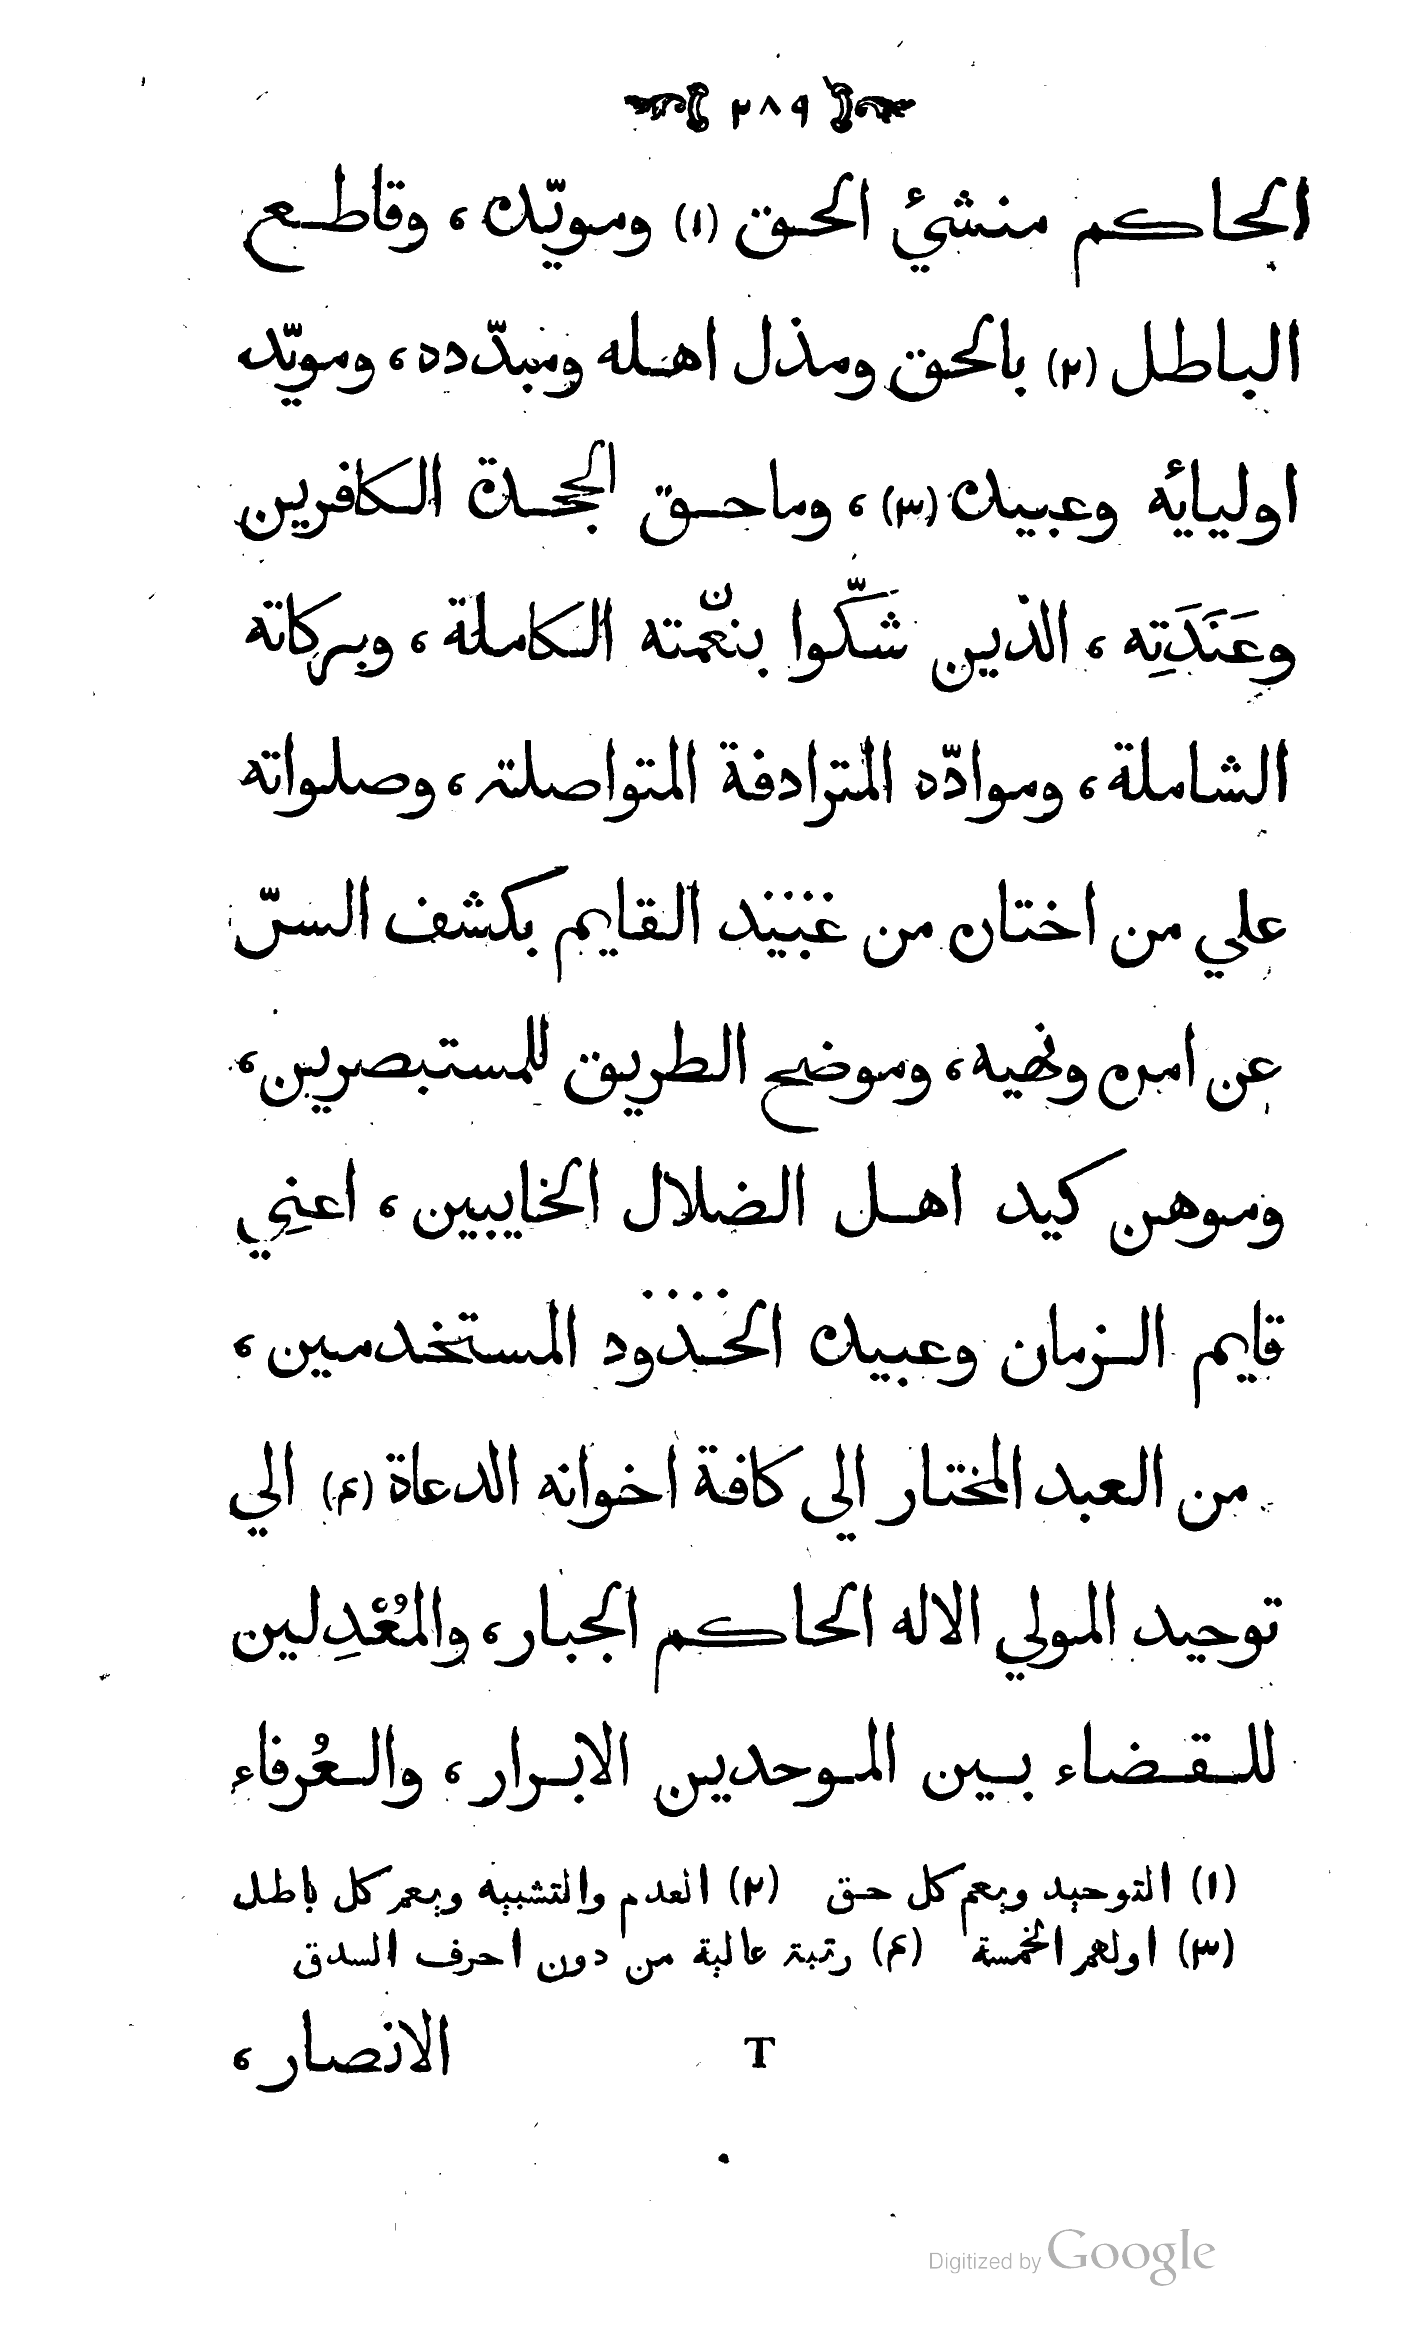 ٢٨٩
الحاكم منشئ الحق (١) ومويّده ، وقاطع
الباطل (٢) بالحق ومذل اهله ومبدّدده ، ومويّد
اوليائه وعبيده (٣) ، وماحق الجحدة الكافرين
وعَنَدَتِه ، الذين شَكّوا بنعمته الكاملة ، وبركاته
الشاملة ، وموادّه المترادفة المتواصلة ، وصلواته
علي من اختاره من عبيد القايم بكشف السرّ
عن امره ونهيه ، وموضح الطريق للمستبصرين ،
وموهن كيد اهل الضلال الخايبين ، اعنِي
قايم الزمان وعبيده الحدود المستخدمين ،
من العبد المختار الى كافة اخوانه الدعاة (٤) الي
توحيد المولي الاله الحاكم الجبار ، والمُعْدِلين
للقضاء بين الموحدين الابرار ، والعُرفاء
(١) التوحيد ويعم كل حق (٢) العدم والتشبيه ويعم كل باطل
(٣) اولهم الخمسة (٤) رتبة عالية من دون احرف السدق
T الانصار ،
Digitized by Google